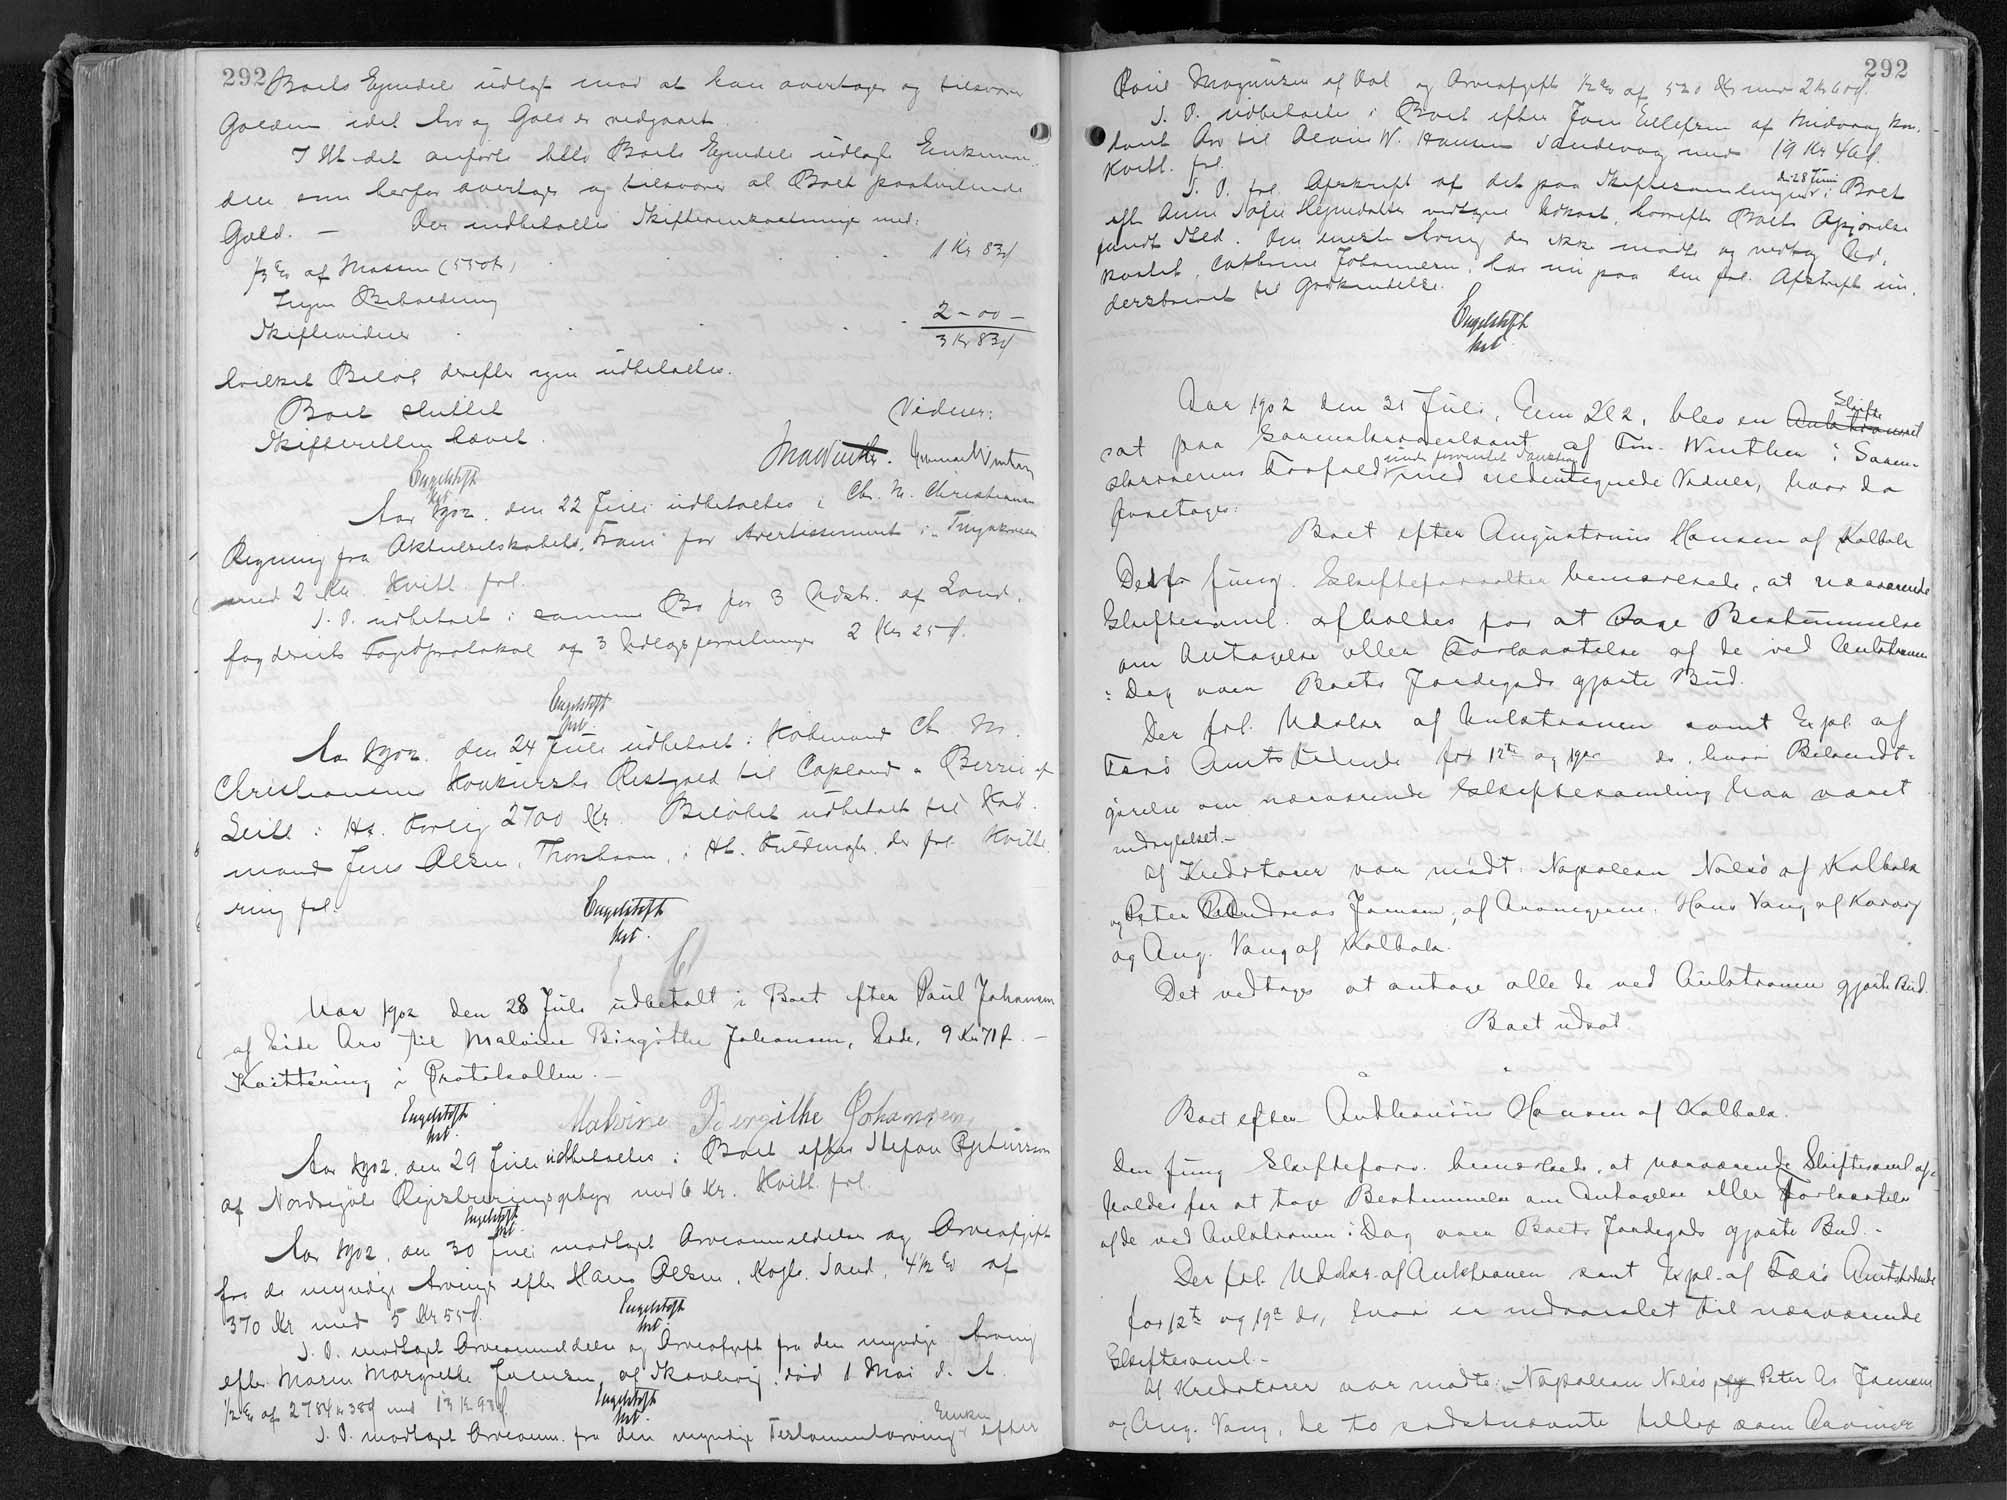 292
Boets Ejendele udlagt mod at han overtager og tilsvarer
Gælden idet Arv og Gæld er vedgaaet.
I Ht. det anførte blev Boets Ejendele udlagt Enkeman-
den som herfor overtager og tilsvarer al Boet paahvilende
Gæld. — Der indbetaltes Skifteomkostninger med:
1/3 % af Massen (550 Kr) 1 Kr 83 Ø
Ingen Beholdning
Skiftevidner 2 - 00 -
3 Kr 83 Ø
hvilket Beløb derefter igen udbetaltes.
Boet sluttet
Skifteretten hævet. Vidner:
Engelstoft
kst.
Aar 1902. den 22 Juli udbetaltes i Chr. M. Christiansen
Regning fra Aktieselskabet "Fram" for Avertissement i "Tingakrossur"
med 2 Kr. Kvitt. frl.
S. D. udbetalt i samme Bo for 3 Udskr. af Land-
fogderiets Fogedprotokol af 3 Udlægsforretninger 2 Kr 25 Ø.
Engelstoft
kst.
Aar 1902. den 24 Juli udbetalt i Købmand Ch. M.
Christiansens Konkursbo Restgæld til Copland & Berrie af
Leith i Ht. Forlig 2700 Kr. Beløbet udbetalt til Køb-
mand Jens Olsen, Thorshavn, i Ht. Fuldmagt, der frl. Kvitte-
ring frl.
Engelstoft
kst.
Aar 1902 den 28 Juli udbetalt i Boet efter Paul Johansen
af Eide Arv til Malvine Birgithe Johansen, Eide, 9 Kr 71 Ø. —
Kvittering i Protokollen. —
Engelstoft Malvine Birgithe Johansen
kst.
Aar 1902. den 29 Juli udbetaltes i Boet efter Stefan
af Nordregøte Registreringsgebyr med 6 Kr. Kvitt. frl.
Engelstoft
kst.
Aar 1902, den 30 Juli modtaget Arveanmeldelse og Arveafgift
fra de myndige Arvinger efter Hans Olsen, Sand, 4 1/2 % af
370 Kr med 5 Kr 55 Ø.
Engelstoft
kst.
S. D. modtaget Arveanmeldelse og Arveafgift fra den myndige Arving
efter Maren Margrethe Jensen, af Skaalevig, død 1 Mai d. A.
1/2 % af 2784 Kr 38 Ø med 13 Kr 93 Ø.
Engelstoft
kst.
S. D. modtaget Arveanm. fra den myndige Testamentarving Enken efter
292
Poul Magnussen af Dal og Arveafgift 1/2 % af 520 Kr med 2 Kr 60 Ø.
S. D. udbetaltes i Boet efter Joen Ellefsen af Midvaag kon-
tant Arv til W. Hansen Sandevaag med 19 Kr 40 Ø.
Kvitt. frl.
S. D. frl. Afskrift af det paa Skiftesamlingen d. 28 Juni i Boet
eft. Anne Sofie Hejnedatter vedtagne Udkast, hvorefter Boets Opgjørelse
fandt Sted. Den eneste Arving der ikke mødte og vedtog Ud-
kastet, Cathrine Johannesen, har nu paa den frl. Afskrift un-
derskrevet til Godkendelse.
Engelstoft
kst.
Aar 1902 den 31 Juli, Em Kl 2, blev en Skifte
sat paa af Fm. Winther i
Forfald under forventet med undertegnede Vidner, hvor da
foretoges:
Boet efter Augustinus Hansen af Kalbak
Den fung. Skifteforvalter bemærkede, at nærværende
Skiftesaml. afholdes for at tage Bestemmelse
om Antagelse eller Forkastelse af de ved Auktionen
i Dag over Boets Jordegods gjorte Bud.
Der frl. Udskr. af Auktionen samt Expl. af
Færø Amtstidende for 12te og 19de ds, hvori Bekendt-
gjørelse om nærværende Skiftesamling har været
indrykket. —
Af Kreditorer var mødt Napoleon Nolsø af Kalbak
og Peter Andreas Joensen, af Hans Vang af
og Aug. Vang af Kalbak.
Det vedtoges at antage alle de ved Auktionen gjorte Bud.
Boet udsat.
Boet efter Hansen af Kalbak.
Den fung Skifteforv. bemærkede, at nærværende Skiftesaml. af-
holdes for at tage Bestemmelse om Antagelse eller Forkastelse
af de ved Auktionen i Dag over Boets Jordegods gjorte Bud. —
Der frl. Udskr. af Auktionen samt Expl. af Færø Amtstidende
for 12te og 19de ds, hvori er indvarslet til nærværende
Skiftesaml. —
Af Kreditorer var mødte: Napoleon Nolsø, Peter As Joensen
og Aug. Vang, de to sidstnævnte tillige som Arvinger